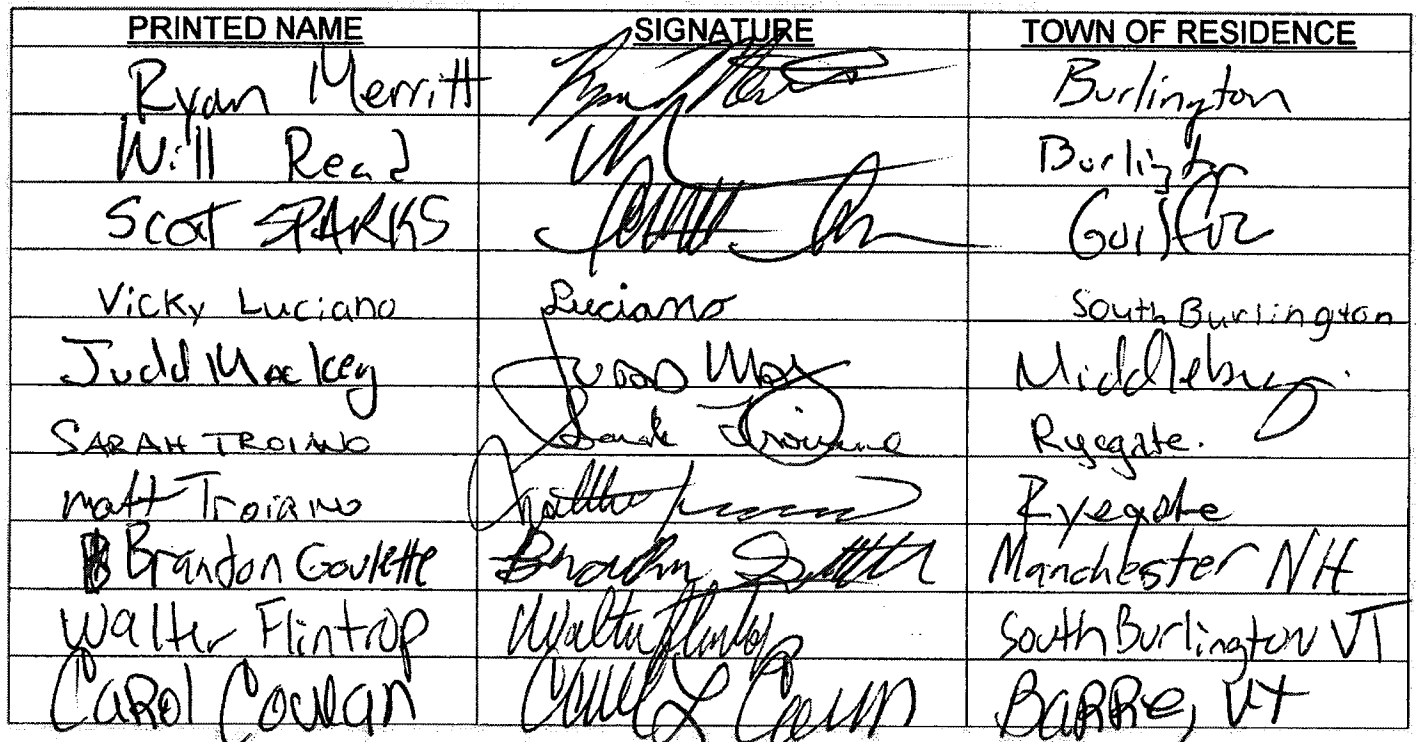 PRINTED NAME SIGNATURE TOWN OF RESIDENCE
Ryan Merritt Burlington
Will Read Burlington
Scott SPARKS
Vicky Luciano Luciano South Burlington
Judd Mackey Judd Middlebury.
SARAH TROIANO Sarah Troiano Ryegate.
Matt Troiano Ryegate
Brandon Goulette Manchester NH
Walter Flintrop Walter South Burlington VT
CAROL Carol L BARRE, VT